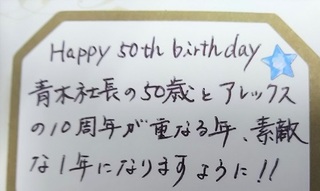 Happy 50th birthday
青木社長の50歳とアレックス
の10周年が重なる年、素敵
な1年になりますように!!